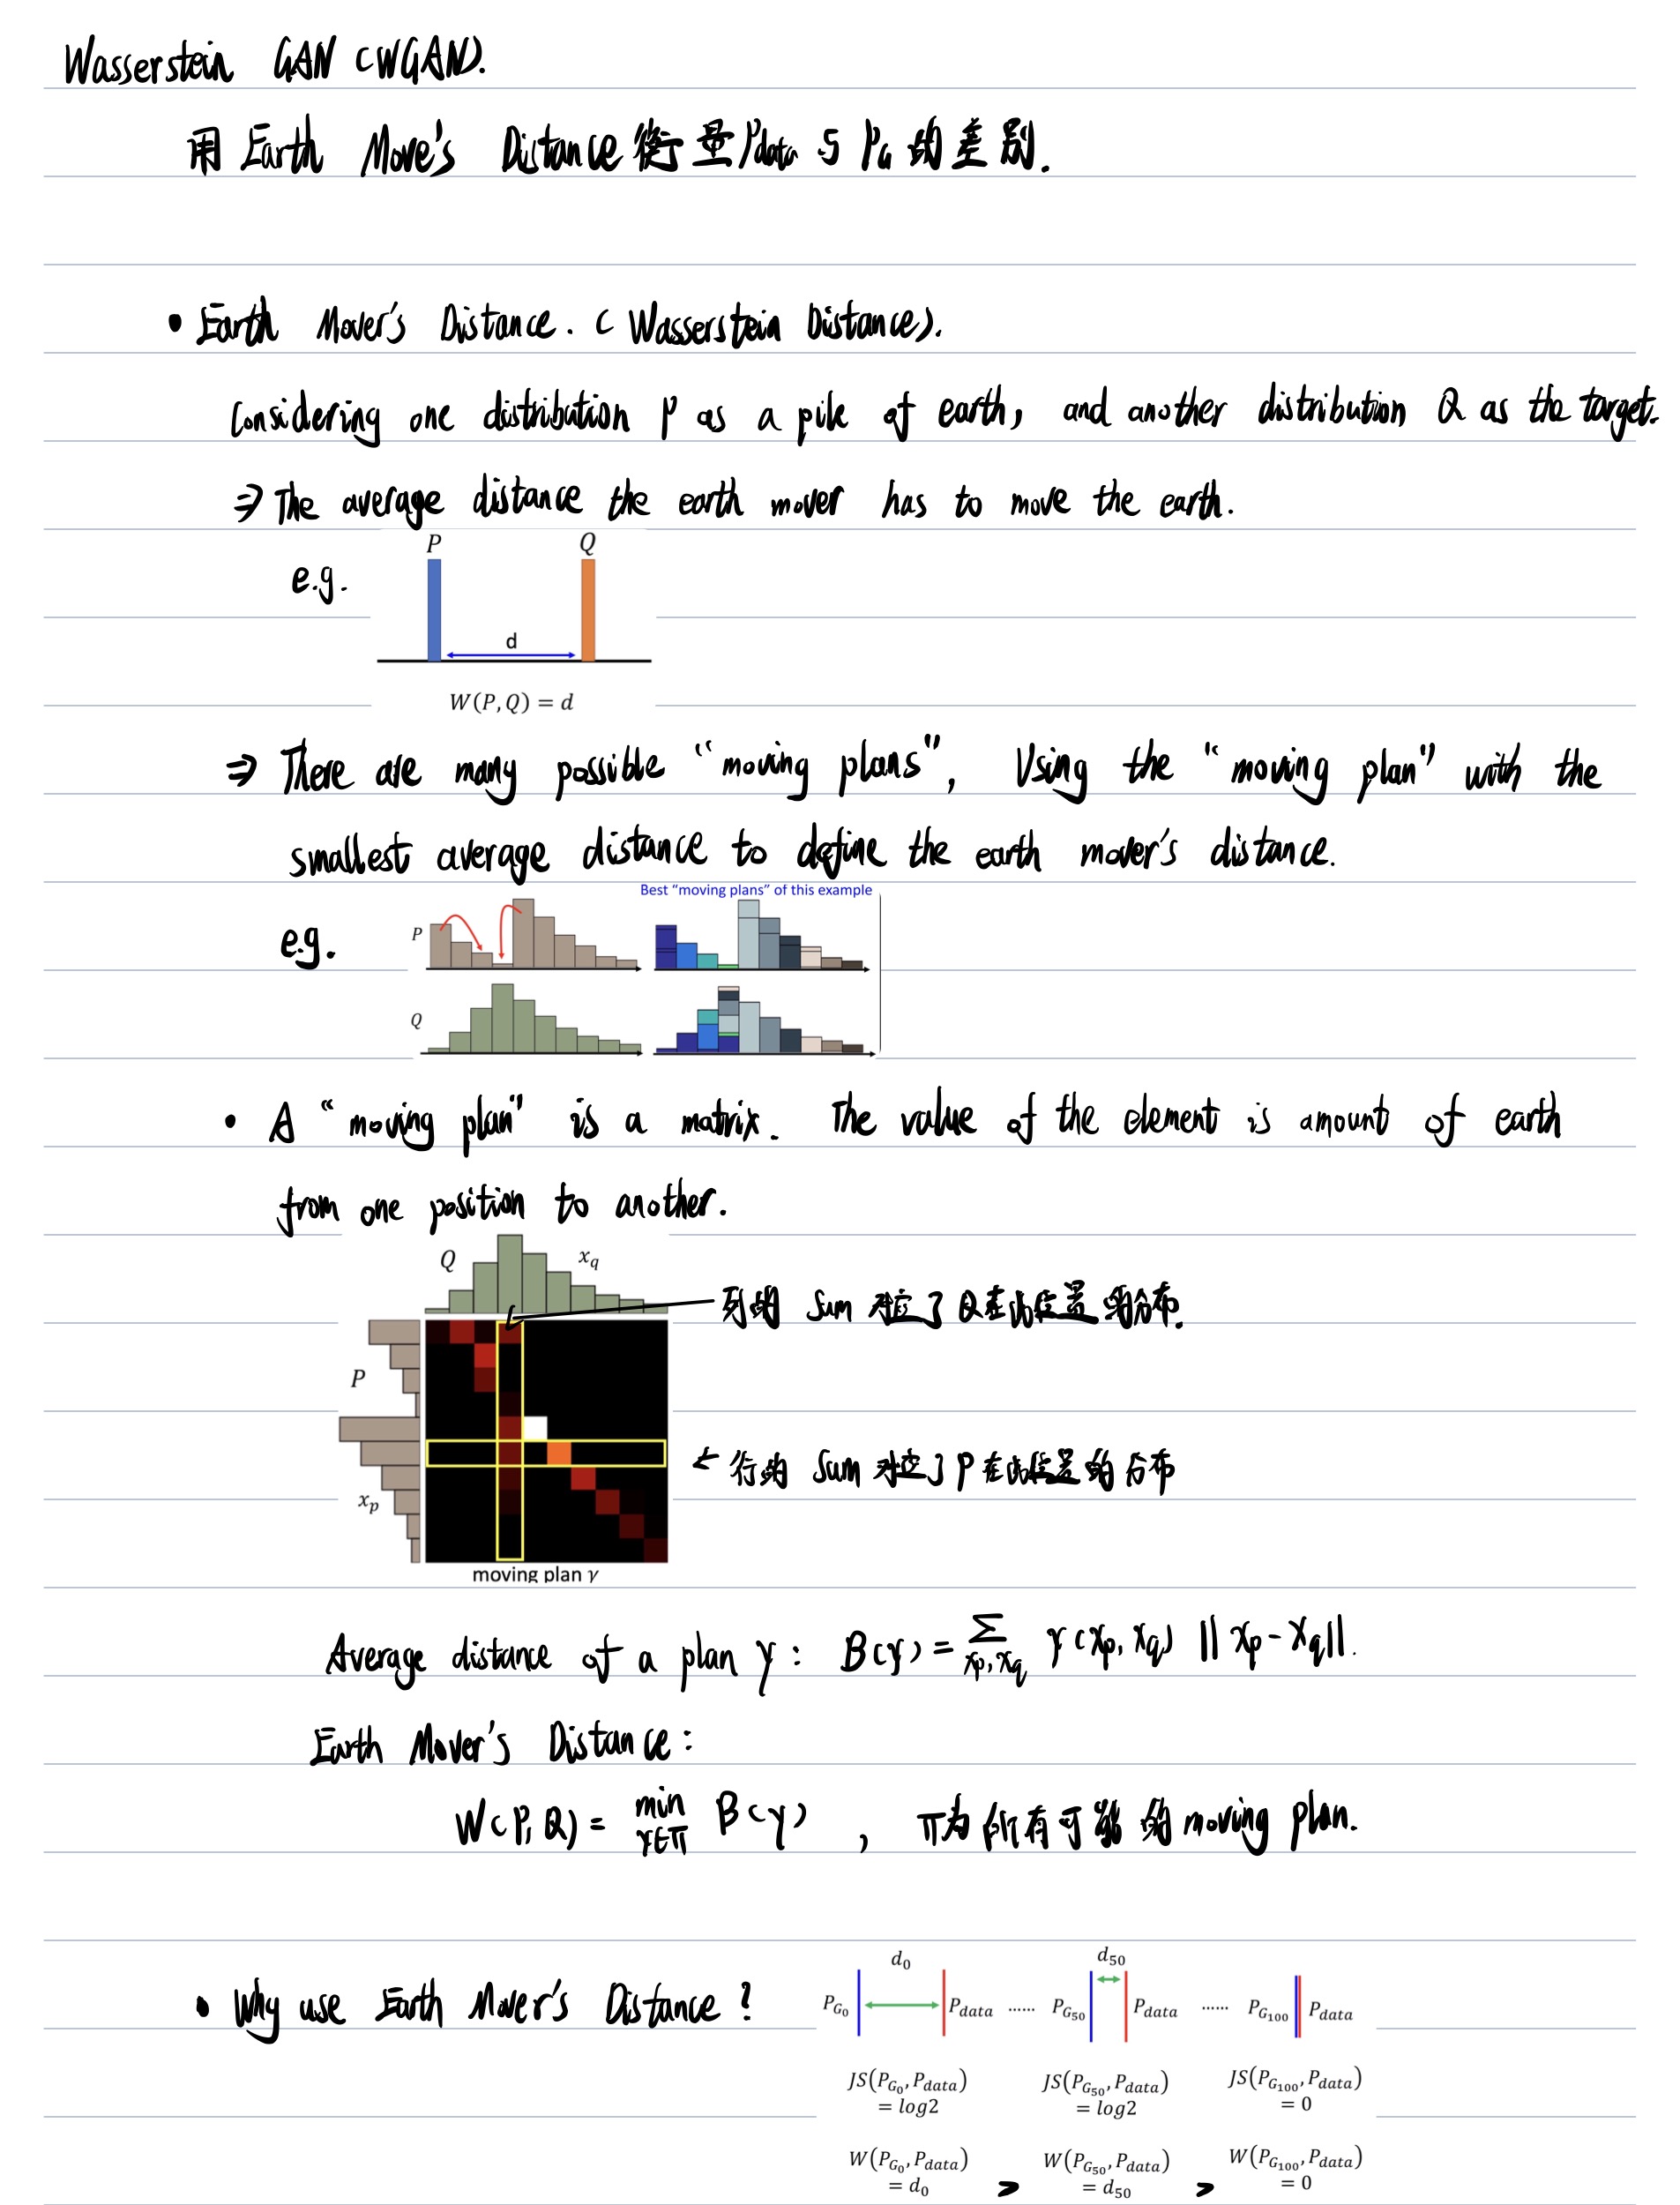 Wasserstein GAN (WGAN).
用 Earth Move's Distance 衡量 Pdata 与 PG 的差别.
• Earth Mover's Distance. (Wasserstein Distance).
Considering one distribution P as a pile of earth, and another distribution Q as the target.
⇒ The average distance the earth mover has to move the earth.
e.g.
P Q
d
W(P,Q) = d
⇒ There are many possible “moving plans”, Using the “moving plan” with the
smallest average distance to define the earth mover's distance.
Best “moving plans” of this example
e.g.
P
Q
• A “moving plan” is a matrix. The value of the element is amount of earth
from one position to another.
Q x_q
列的 Sum 对应了 Q 在此位置的分布.
P
← 行的 Sum 对应了 P 在此位置的分布
x_p
moving plan γ
Average distance of a plan γ: B(γ) = Σ_{xp,xq} γ(xp, xq) ||xp - xq||.
Earth Mover's Distance:
W(P, Q) = min_{γ∈π} B(γ) , π为所有可能的 moving plan.
• Why use Earth Mover's Distance?
d_0 d_50
P_{G_0} P_{data} …… P_{G_50} P_{data} …… P_{G_100} P_{data}
JS(P_{G_0}, P_{data}) JS(P_{G_50}, P_{data}) JS(P_{G_100}, P_{data})
= log2 = log2 = 0
W(P_{G_0}, P_{data}) W(P_{G_50}, P_{data}) W(P_{G_100}, P_{data})
= d_0 > = d_50 > = 0